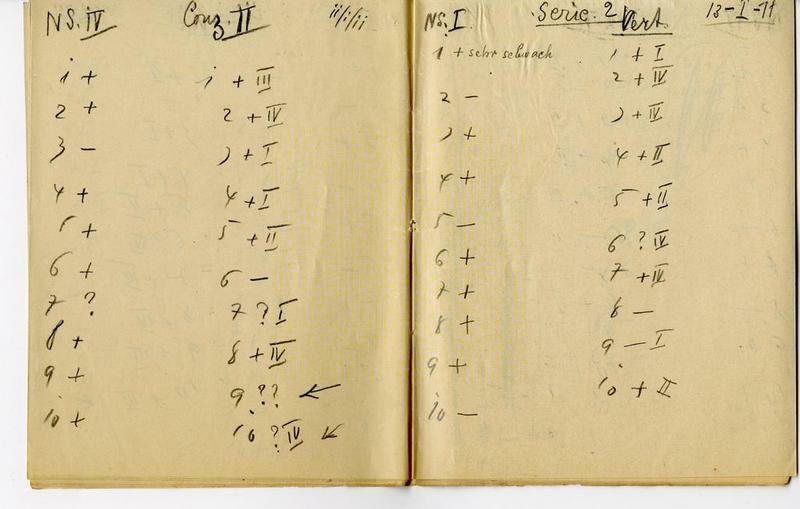 NS. IV Conz. II ii/i/ii
1 + 1 + III
2 + 2 + IV
3 – 3 + I
4 + 4 + I
5 + 5 + II
6 + 6 –
7 ? 7 ? I
8 + 8 + IV
9 + 9 ?? ←
10 + 10 ? IV ↙
NS. I Serie. 2 Vert. 13-I-11
1 + sehr schwach 1 + I
2 – 2 + IV
3 + 3 + IV
4 + 4 + II
5 – 5 + II
6 + 6 ? IV
7 + 7 + IV
8 + 8 –
9 + 9 – I
10 – 10 + II